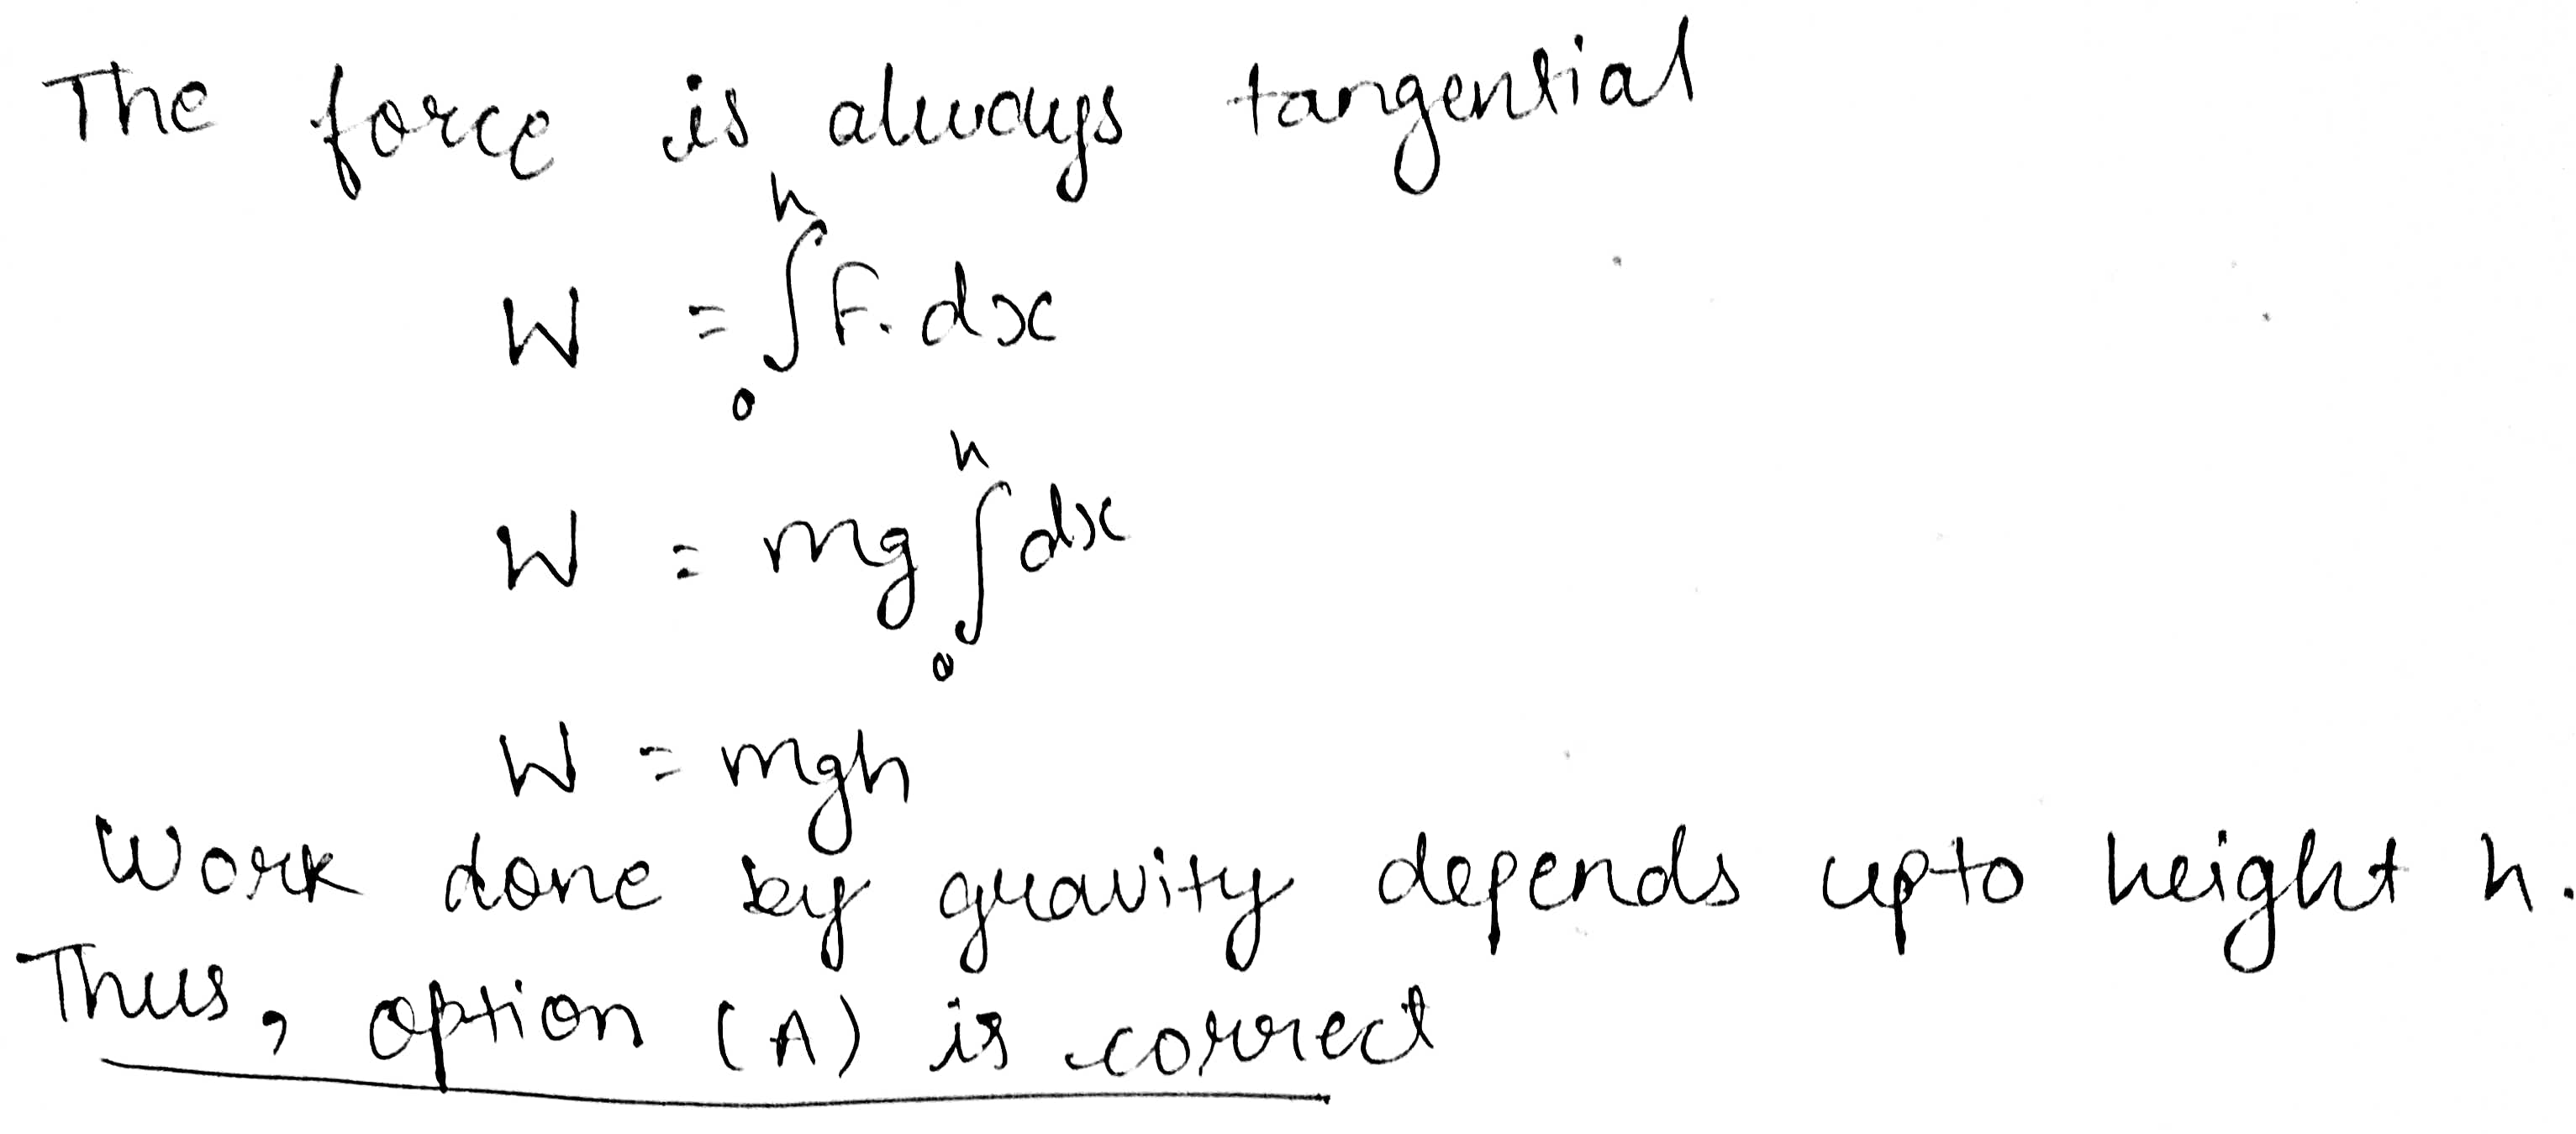 The force is always tangential
W = ∫₀ʰ F. dx
W = mg ∫₀ʰ dx
W = mgh
Work done by gravity depends upto height h.
Thus, option (A) is correct